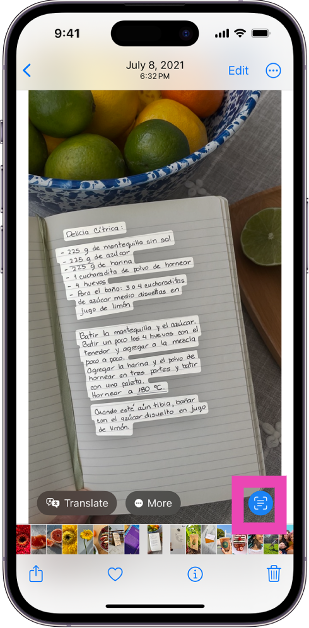 9:41
July 8, 2021
6:32 PM
Edit
Delicia Cítrica:
- 225 g de mantequilla sin sal
- 225 g de azúcar
- 225 g de harina
- 1 cucharadita de polvo de hornear
- 4 huevos
- Para el baño: 3 o 4 cucharadas
de azúcar medio disueltas en
jugo de limón
Batir la mantequilla y el azúcar.
Batir un poco los 4 huevos con el
tenedor y agregar a la mezcla
poco a poco.
Agregar la harina y el polvo de
hornear en tres partes y batir
con una palata.
Hornear a 180 °C.
Cuando esté aún tibia, bañar
con el azúcar disuelto en jugo
de limón.
Translate
More